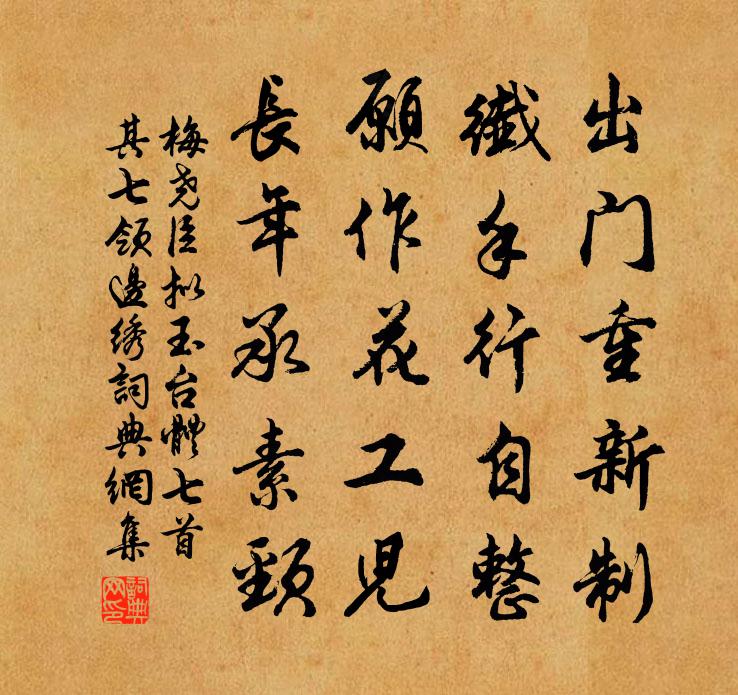 出门重新制
纖手行自整
願作花工児
長年承素頸
梅尧臣拟玉台體七首
其七领邊绣詞典網集
詞典网印